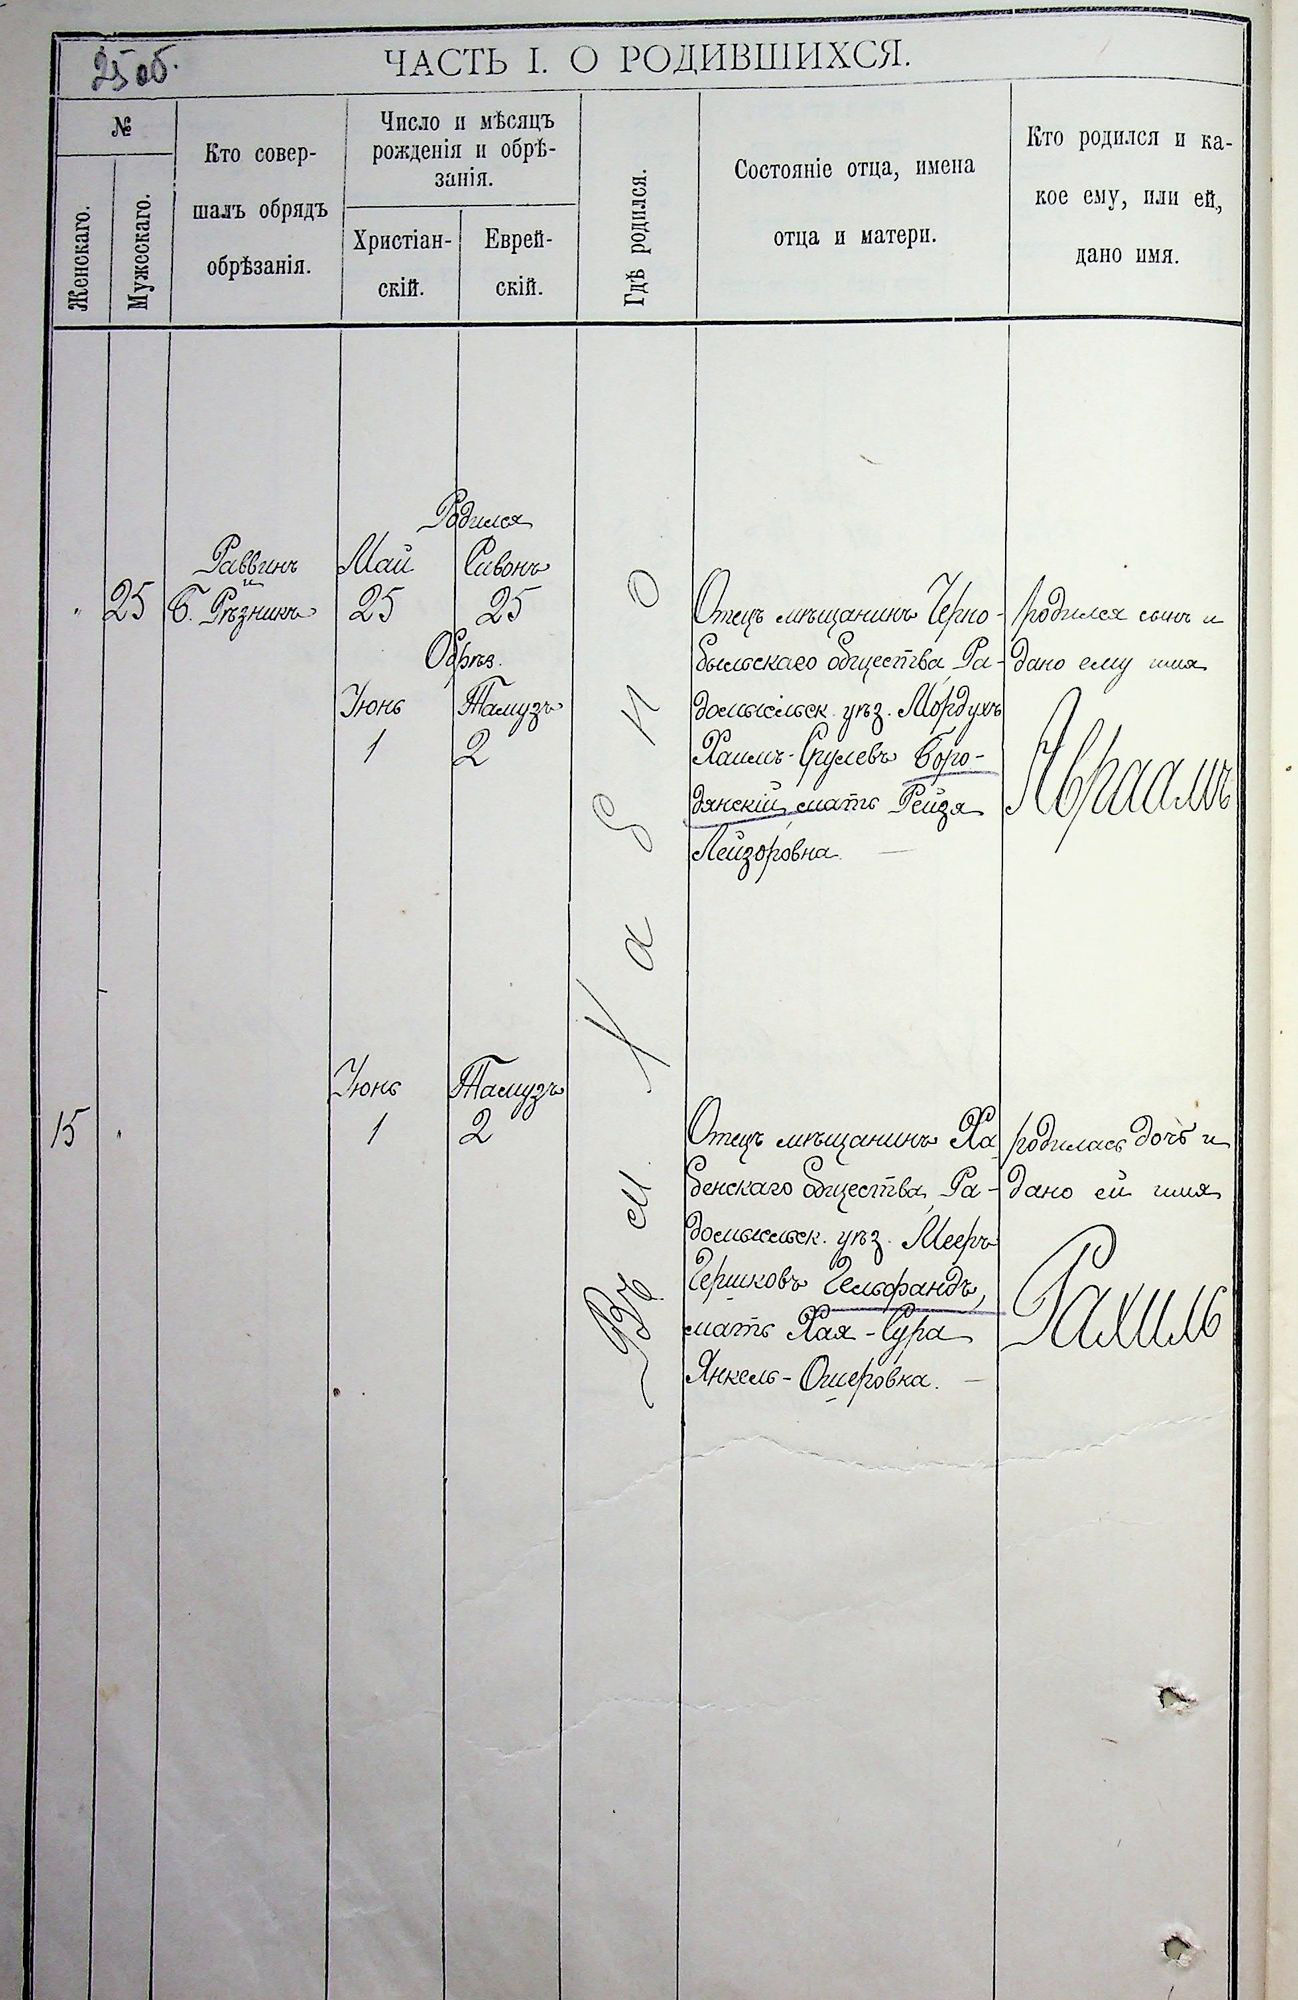 25 об.
ЧАСТЬ I. О РОДИВШИХСЯ.
№
Женскаго.
Мужескаго.
Кто совер-
шалъ обрядъ
обрѣзанія.
Число и мѣсяцъ
рожденія и обрѣ-
занія.
Христіан-
скій.
Еврей-
скій.
Гдѣ родился.
Состояніе отца, имена
отца и матери.
Кто родился и ка-
кое ему, или ей,
дано имя.
Родился
Раввинъ Май Сивонъ
и
" 25 Б. Рѣзникъ 25 25
Обрѣз.
Іюнь Тамузъ
1 2
Въ м. Хабно
Отецъ мѣщанинъ Черно-
быльскаго общества, Ра-
домысльск. уѣз. Мордухъ
Хаимъ-Срулевъ Боро-
дянскій, мать Рейзя
Лейзоровна.
родился сынъ и
дано ему имя
Авраамъ
Іюнь Тамузъ
15 " 1 2
Отецъ мѣщанинъ Ха-
бенскаго общества, Ра-
домысльск. уѣз. Мееръ
Гершковъ Гельфандъ,
мать Хая-Сура
Янкель-Ошеровна.
родилась дочь и
дано ей имя
Рахиль